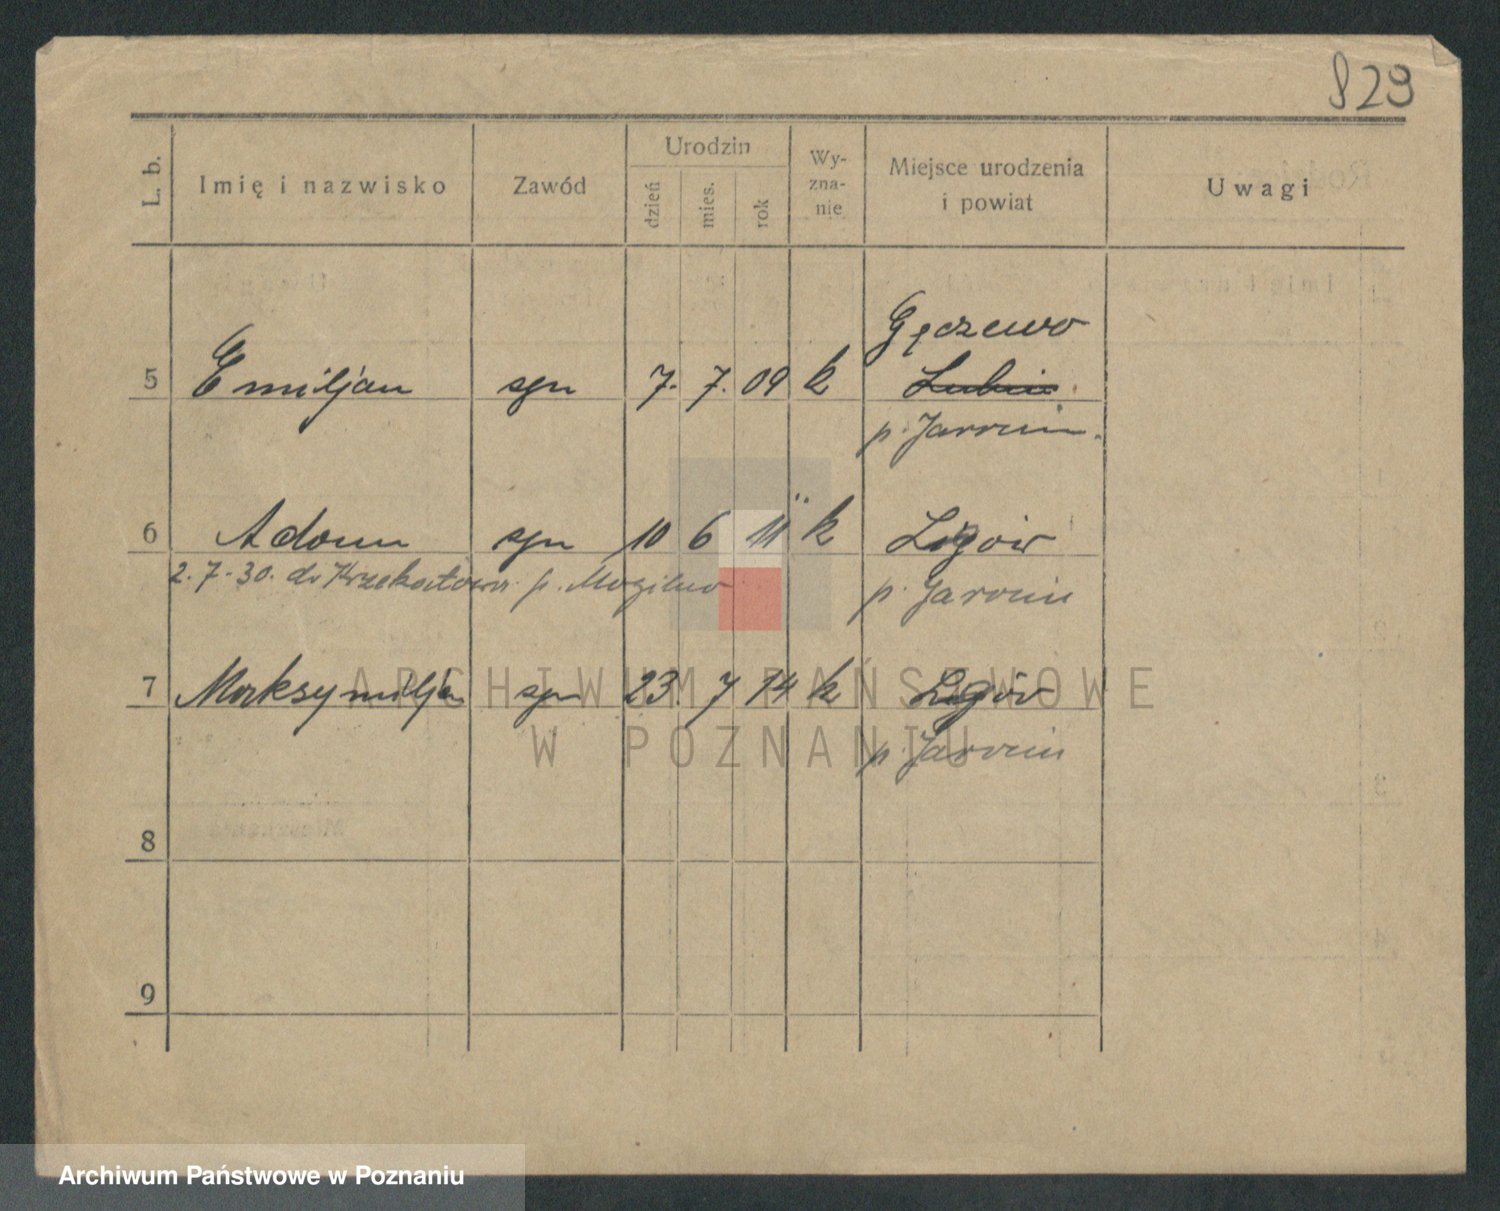 829
L. b.
Imię i nazwisko
Zawód
Urodzin
dzień
mies.
rok
Wy-
zna-
nie
Miejsce urodzenia
i powiat
Uwagi
Gęczewo
5 Emiljan syn 7. 7. 09 k Lubin
p. Jarocin.
6 Adam syn 10 6 11 k Ligów
2.7.-30. do p. Mogilno p. Jarocin
7 Maksymiljan syn 23. 7 14 k Ligów
p. Jarocin
8
9
ARCHIWUM PAŃSTWOWE
W POZNANIU
Archiwum Państwowe w Poznaniu